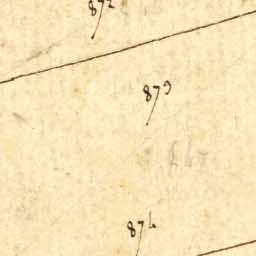 872
873
874